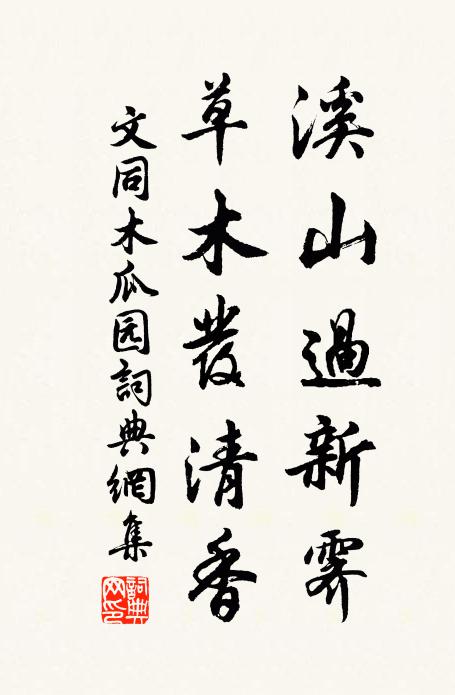 溪山過新霽
草木發清香
文同木瓜园詞典網集
詞典網印